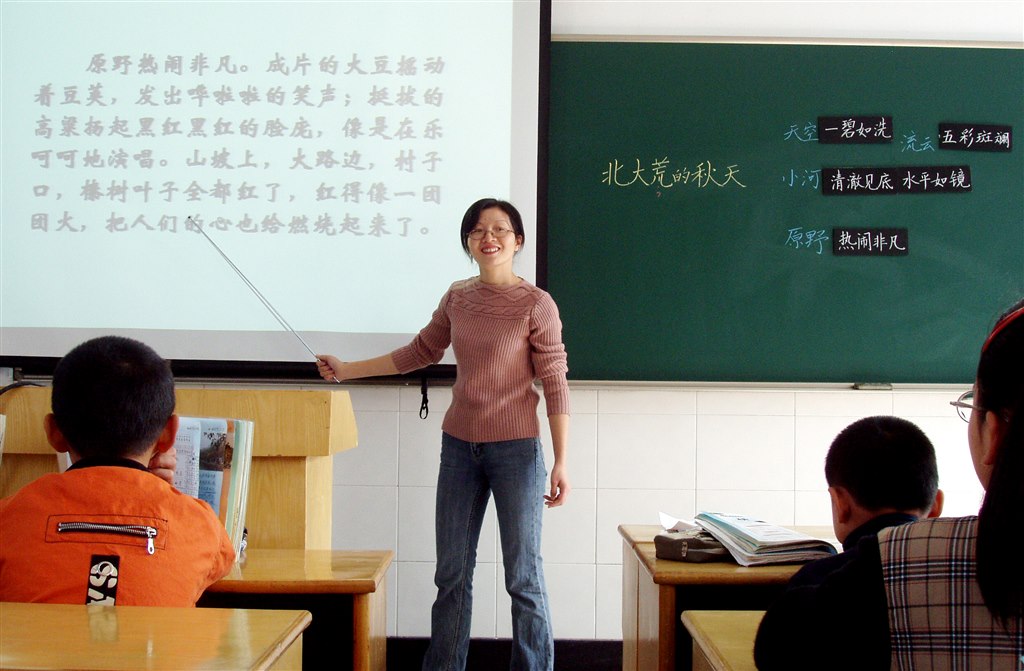 原野热闹非凡。成片的大豆摇动
着豆荚，发出哗啦啦的笑声；挺拔的
高粱扬起黑红黑红的脸庞，像是在乐
呵呵地演唱。山坡上，大路边，村子
口，榛树叶子全都红了，红得像一团
团火，把人们的心也给燃烧起来了。
北大荒的秋天
天空 一碧如洗 流云 五彩斑斓
小河 清澈见底 水平如镜
原野 热闹非凡